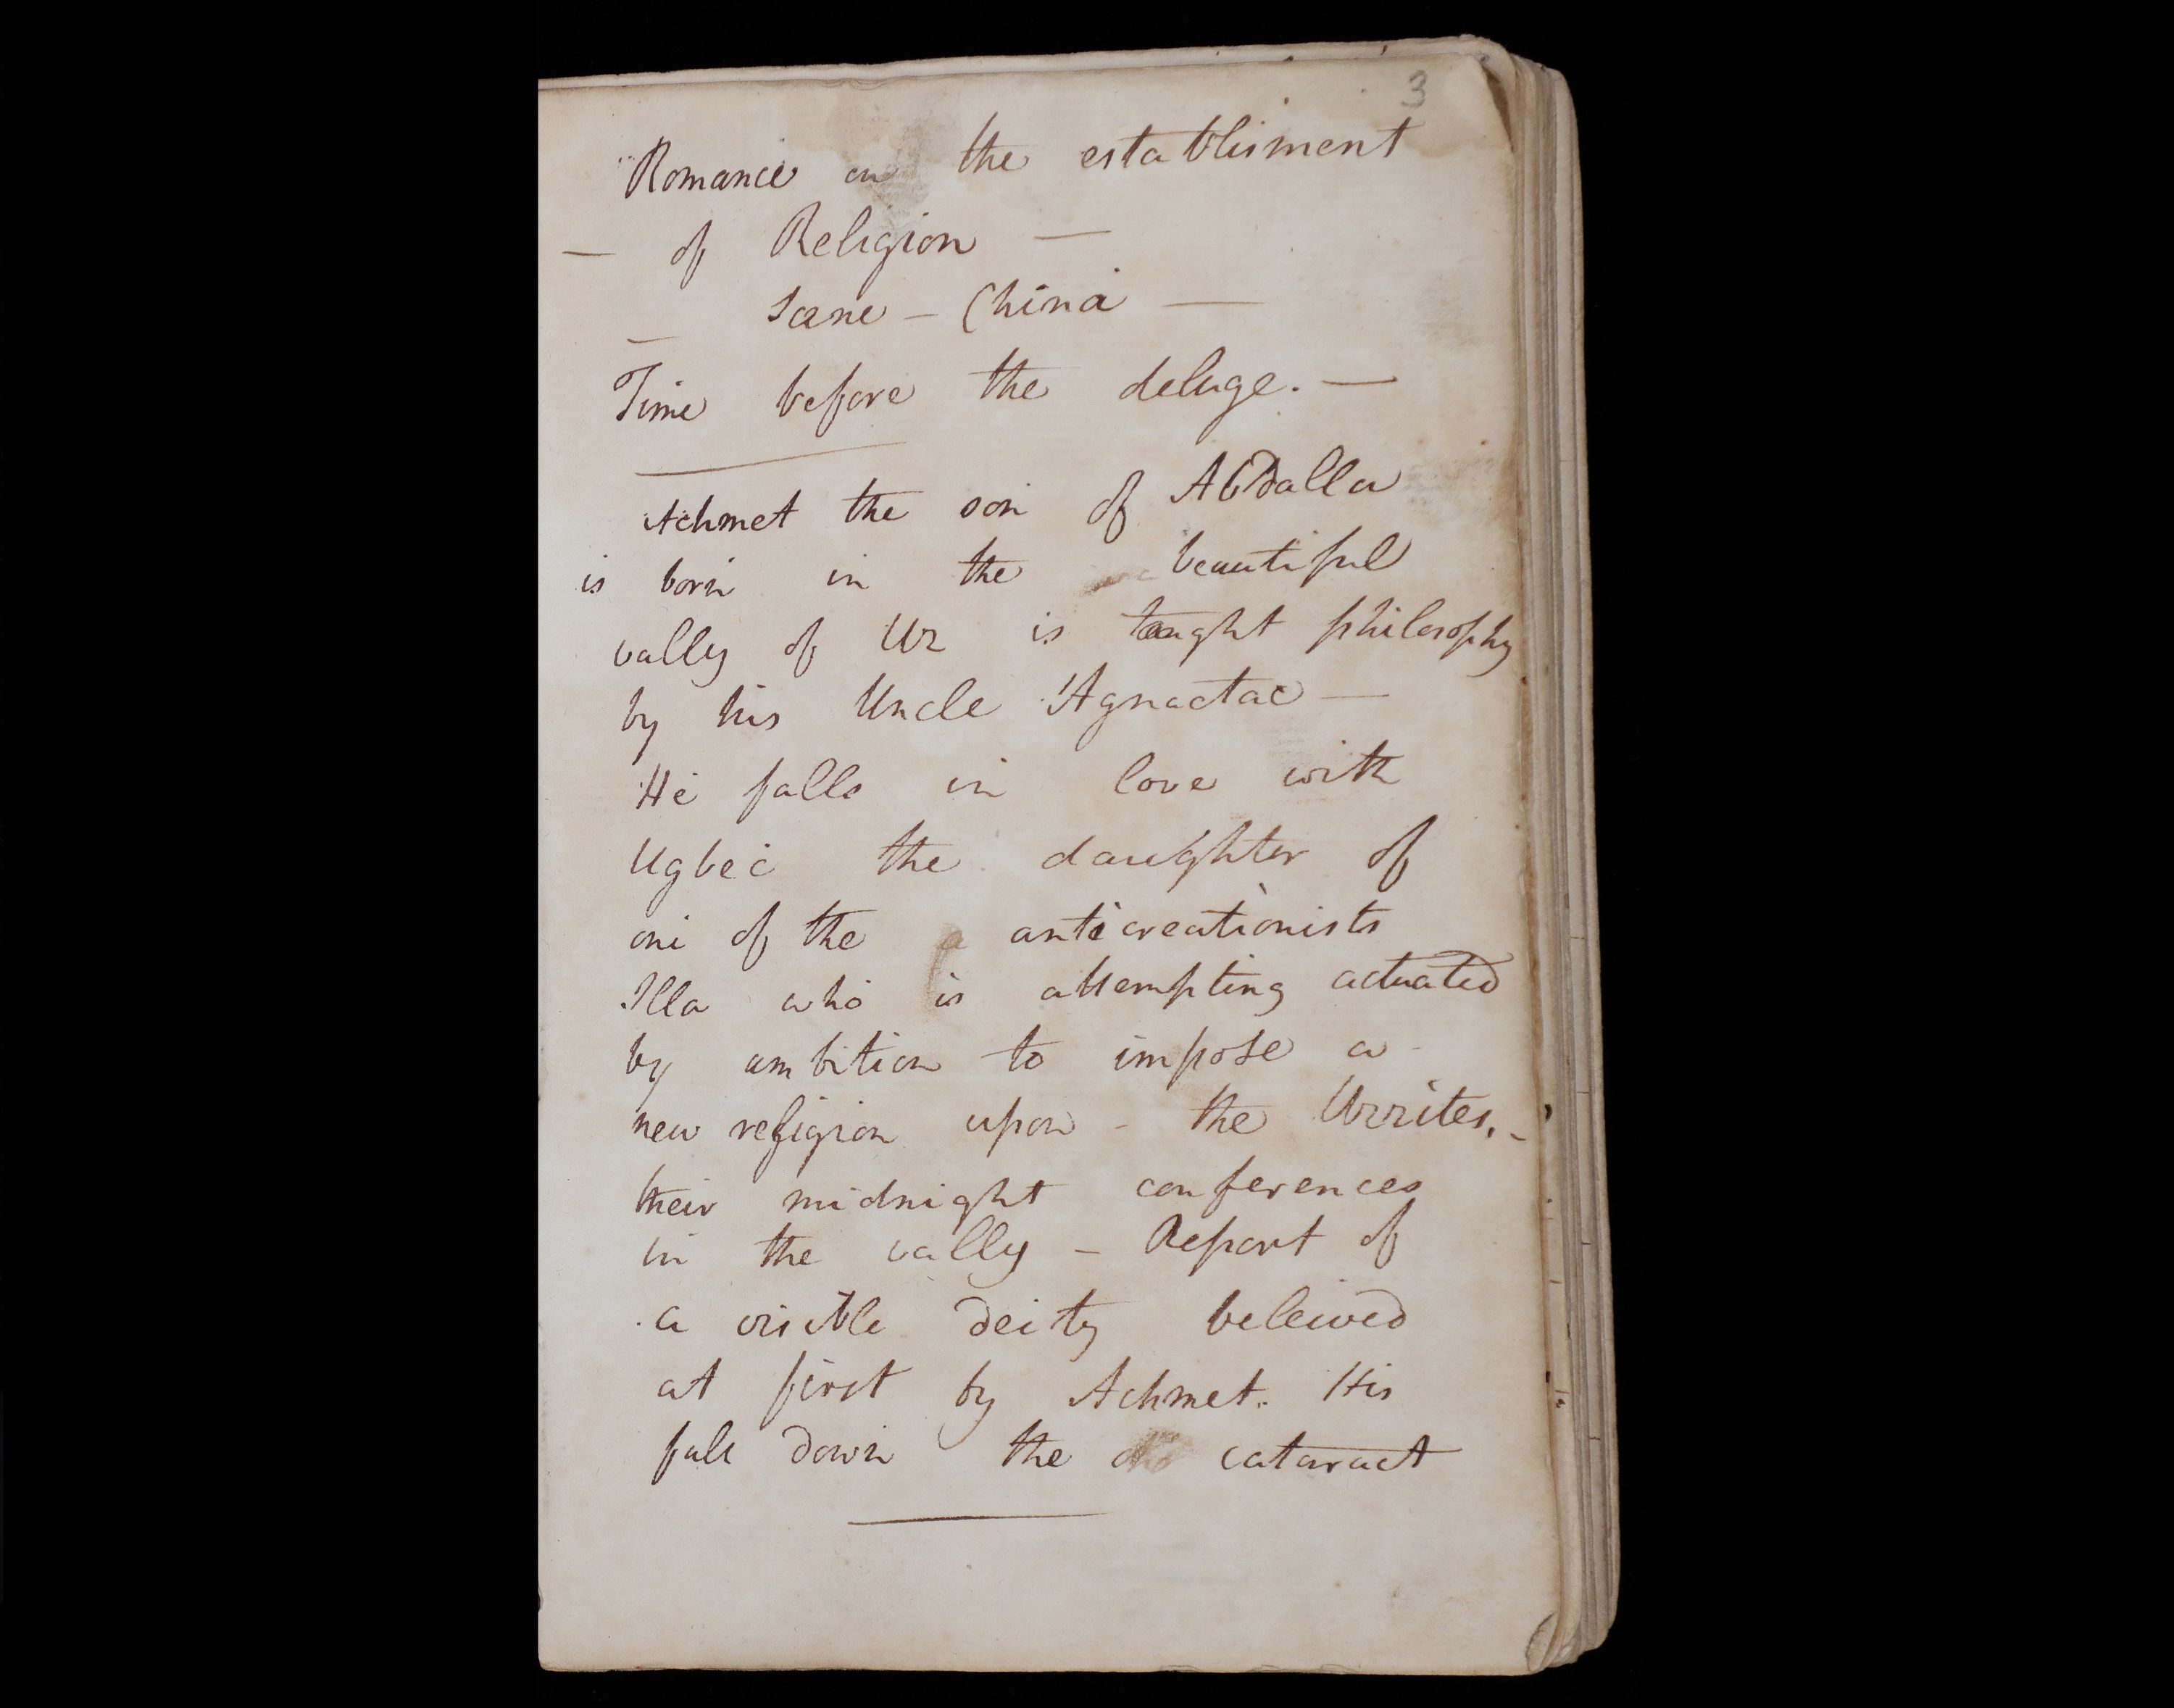 3
Romance on the establisment
— of Religion —
— Scene — China —
Time before the deluge. —
Achmet the son of Abdalla
is born in the beautiful
vally of Ur is taught philosophy
by his Uncle Agnactac —
He falls in love with
Ugbec the daughter of
one of the anticreationists
Illa who is attempting actuated
by ambition to impose a
new religion upon - the Urrites. -
their midnight conferences
in the vally - Report of
a visible deity beleived
at first by Achmet. His
fall down the cataract